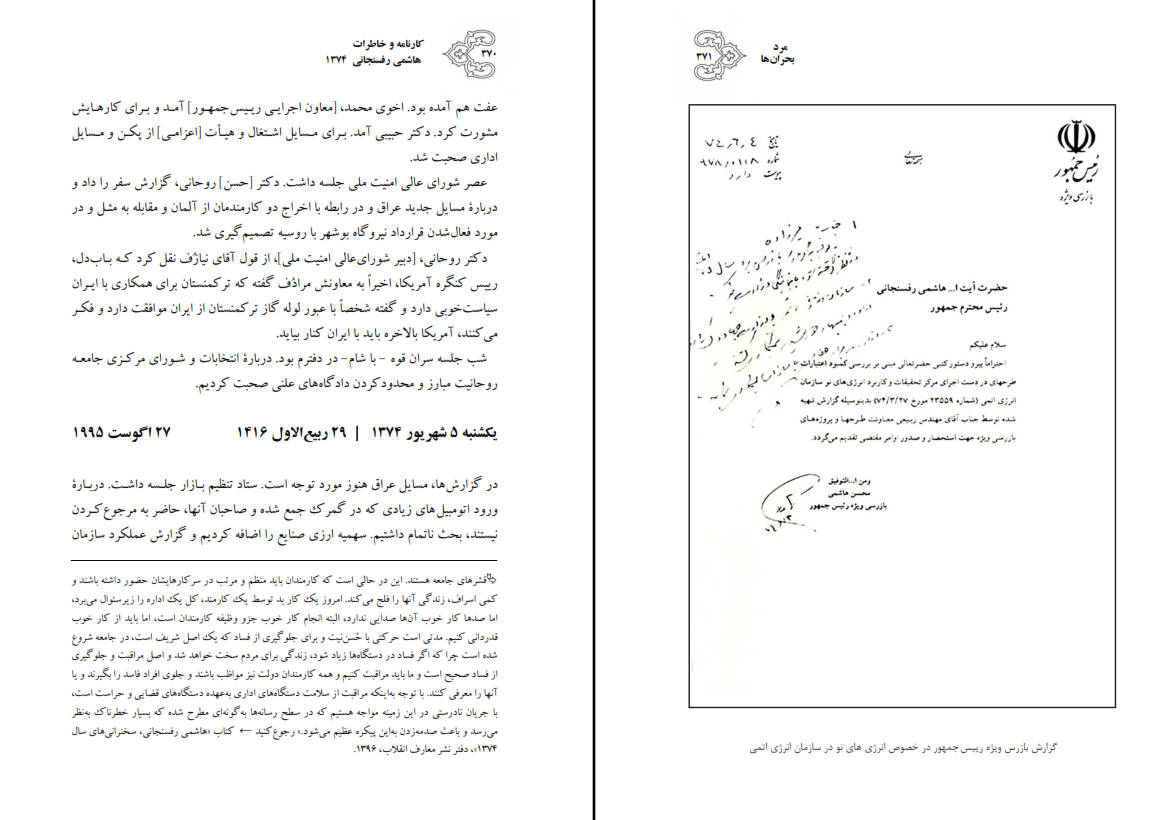 ۳۷۰
کارنامه و خاطرات
هاشمی رفسنجانی ۱۳۷۴
عفت هم آمده بود. اخوی محمد، [معاون اجرایی رییس‌جمهور] آمد و برای کارهایش
مشورت کرد. دکتر حبیبی آمد. برای مسایل اشتغال و هیأت [اعزامی] از پکن و مسایل
اداری صحبت شد.
عصر شورای عالی امنیت ملی جلسه داشت. دکتر [حسن] روحانی، گزارش سفر را داد و
دربارهٔ مسایل جدید عراق و در رابطه با اخراج دو کارمندمان از آلمان و مقابله به مثل و در
مورد فعال‌شدن قرارداد نیروگاه بوشهر با روسیه تصمیم‌گیری شد.
دکتر روحانی، [دبیر شورای‌عالی امنیت ملی]، از قول آقای نیازُف نقل کرد که باب‌دل،
رییس کنگره آمریکا، اخیراً به معاونش مرادُف گفته که ترکمنستان برای همکاری با ایران
سیاست‌خوبی دارد و گفته شخصاً با عبور لوله گاز ترکمنستان از ایران موافقت دارد و فکر
می‌کنند، آمریکا بالاخره باید با ایران کنار بیاید.
شب جلسه سران قوه - با شام- در دفترم بود. دربارهٔ انتخابات و شورای مرکزی جامعه
روحانیت مبارز و محدودکردن دادگاه‌های علنی صحبت کردیم.
یکشنبه ۵ شهریور ۱۳۷۴ | ۲۹ ربیع‌الاول ۱۴۱۶ ۲۷ اگوست ۱۹۹۵
در گزارش‌ها، مسایل عراق هنوز مورد توجه است. ستاد تنظیم بازار جلسه داشت. دربارهٔ
ورود اتومبیل‌های زیادی که در گمرک جمع شده و صاحبان آنها، حاضر به مرجوع‌کردن
نیستند، بحث ناتمام داشتیم. سهمیه ارزی صنایع را اضافه کردیم و گزارش عملکرد سازمان
قشرهای جامعه هستند. این در حالی است که کارمندان باید منظم و مرتب در سرکارهایشان حضور داشته باشند و
کمی اسراف، زندگی آنها را فلج می‌کند. امروز یک کار بد توسط یک کارمند، کل یک اداره را زیرسئوال می‌برد،
اما صدها کار خوب آن‌ها صدایی ندارد، البته انجام کار خوب جزو وظیفه کارمندان است، اما باید از کار خوب
قدردانی کنیم. مدتی است حرکتی با حُسن‌نیت و برای جلوگیری از فساد که یک اصل شریف است، در جامعه شروع
شده است چرا که اگر فساد در دستگاه‌ها زیاد شود، زندگی برای مردم سخت خواهد شد و اصل مراقبت و جلوگیری
از فساد صحیح است و ما باید مراقبت کنیم و همه کارمندان دولت نیز مواظب باشند و جلوی افراد فاسد را بگیرند و یا
آنها را معرفی کنند. با توجه به‌اینکه مراقبت از سلامت دستگاه‌های اداری به‌عهده دستگاه‌های قضایی و حراست است،
با جریان نادرستی در این زمینه مواجه هستیم که در سطح رسانه‌ها به‌گونه‌ای مطرح شده که بسیار خطرناک به‌نظر
می‌رسد و باعث صدمه‌زدن به‌این پیکره عظیم می‌شود.» رجوع‌کنید ← کتاب «هاشمی رفسنجانی، سخنرانی‌های سال
۱۳۷۴»، دفتر نشر معارف انقلاب، ۱۳۹۶.
۳۷۱
مرد
بحران‌ها
رئیس جمهور
بازرسی ویژه
تاریخ
شماره
پیوست دارد
حضرت آیت ا... هاشمی رفسنجانی
رئیس محترم جمهور
سلام علیکم
احتراماً پیرو دستور کتبی حضرتعالی مبنی بر بررسی کمبود اعتبارات
طرحهای در دست اجرای مرکز تحقیقات و کاربرد انرژی‌های نو سازمان
انرژی اتمی (شماره ۲۳۵۵۹ مورخ ۷۴/۳/۲۷) بدینوسیله گزارش تهیه
شده توسط جناب آقای مهندس ربیعی معاونت طرحها و پروژه‌های
بازرسی ویژه جهت استحضار و صدور اوامر مقتضی تقدیم می‌گردد.
ومن ا...التوفیق
محسن هاشمی
بازرسی ویژه رئیس جمهور
گزارش بازرس ویژه رییس جمهور در خصوص انرژی های نو در سازمان انرژی اتمی